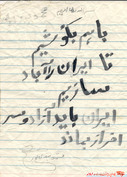 با هم بکوشیم
تا
ایران را آباد
سازیم
ایران باید آزاد و سر
افراز بماند